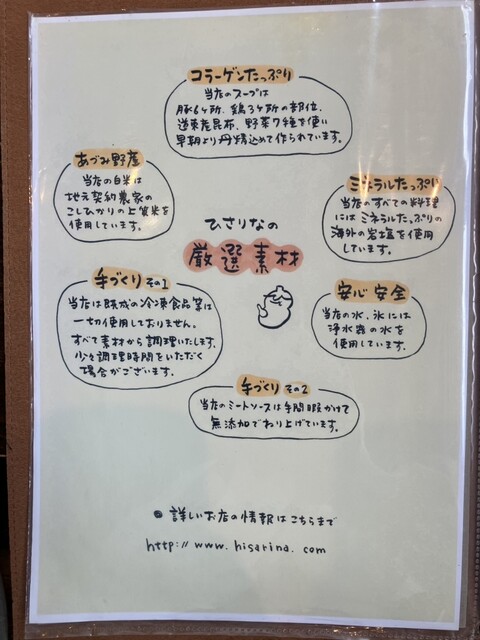 コラーゲンたっぷり
当店のスープは
豚6ヶ所、鶏3ヶ所の部位、
道東産昆布、野菜7種を使い
早朝より丹精込めて作られています。
あづみ野産
当店の白米は
地元契約農家の
こしひかりの上質米を
使用しています。
ミネラルたっぷり
当店のすべての料理
にはミネラルたっぷりの
海外の岩塩を使用
しています。
ひさりなの
厳選素材
手づくり その1
当店は既成の冷凍食品等は
一切使用しておりません。
すべて素材から調理いたします。
少々調理時間をいただく
場合がございます。
安心安全
当店の水、氷には
浄水器の水を
使用しています。
手づくり その2
当店のミートソースは手間暇かけて
無添加でねり上げています。
詳しいお店の情報はこちらまで
http://www.hisarina.com